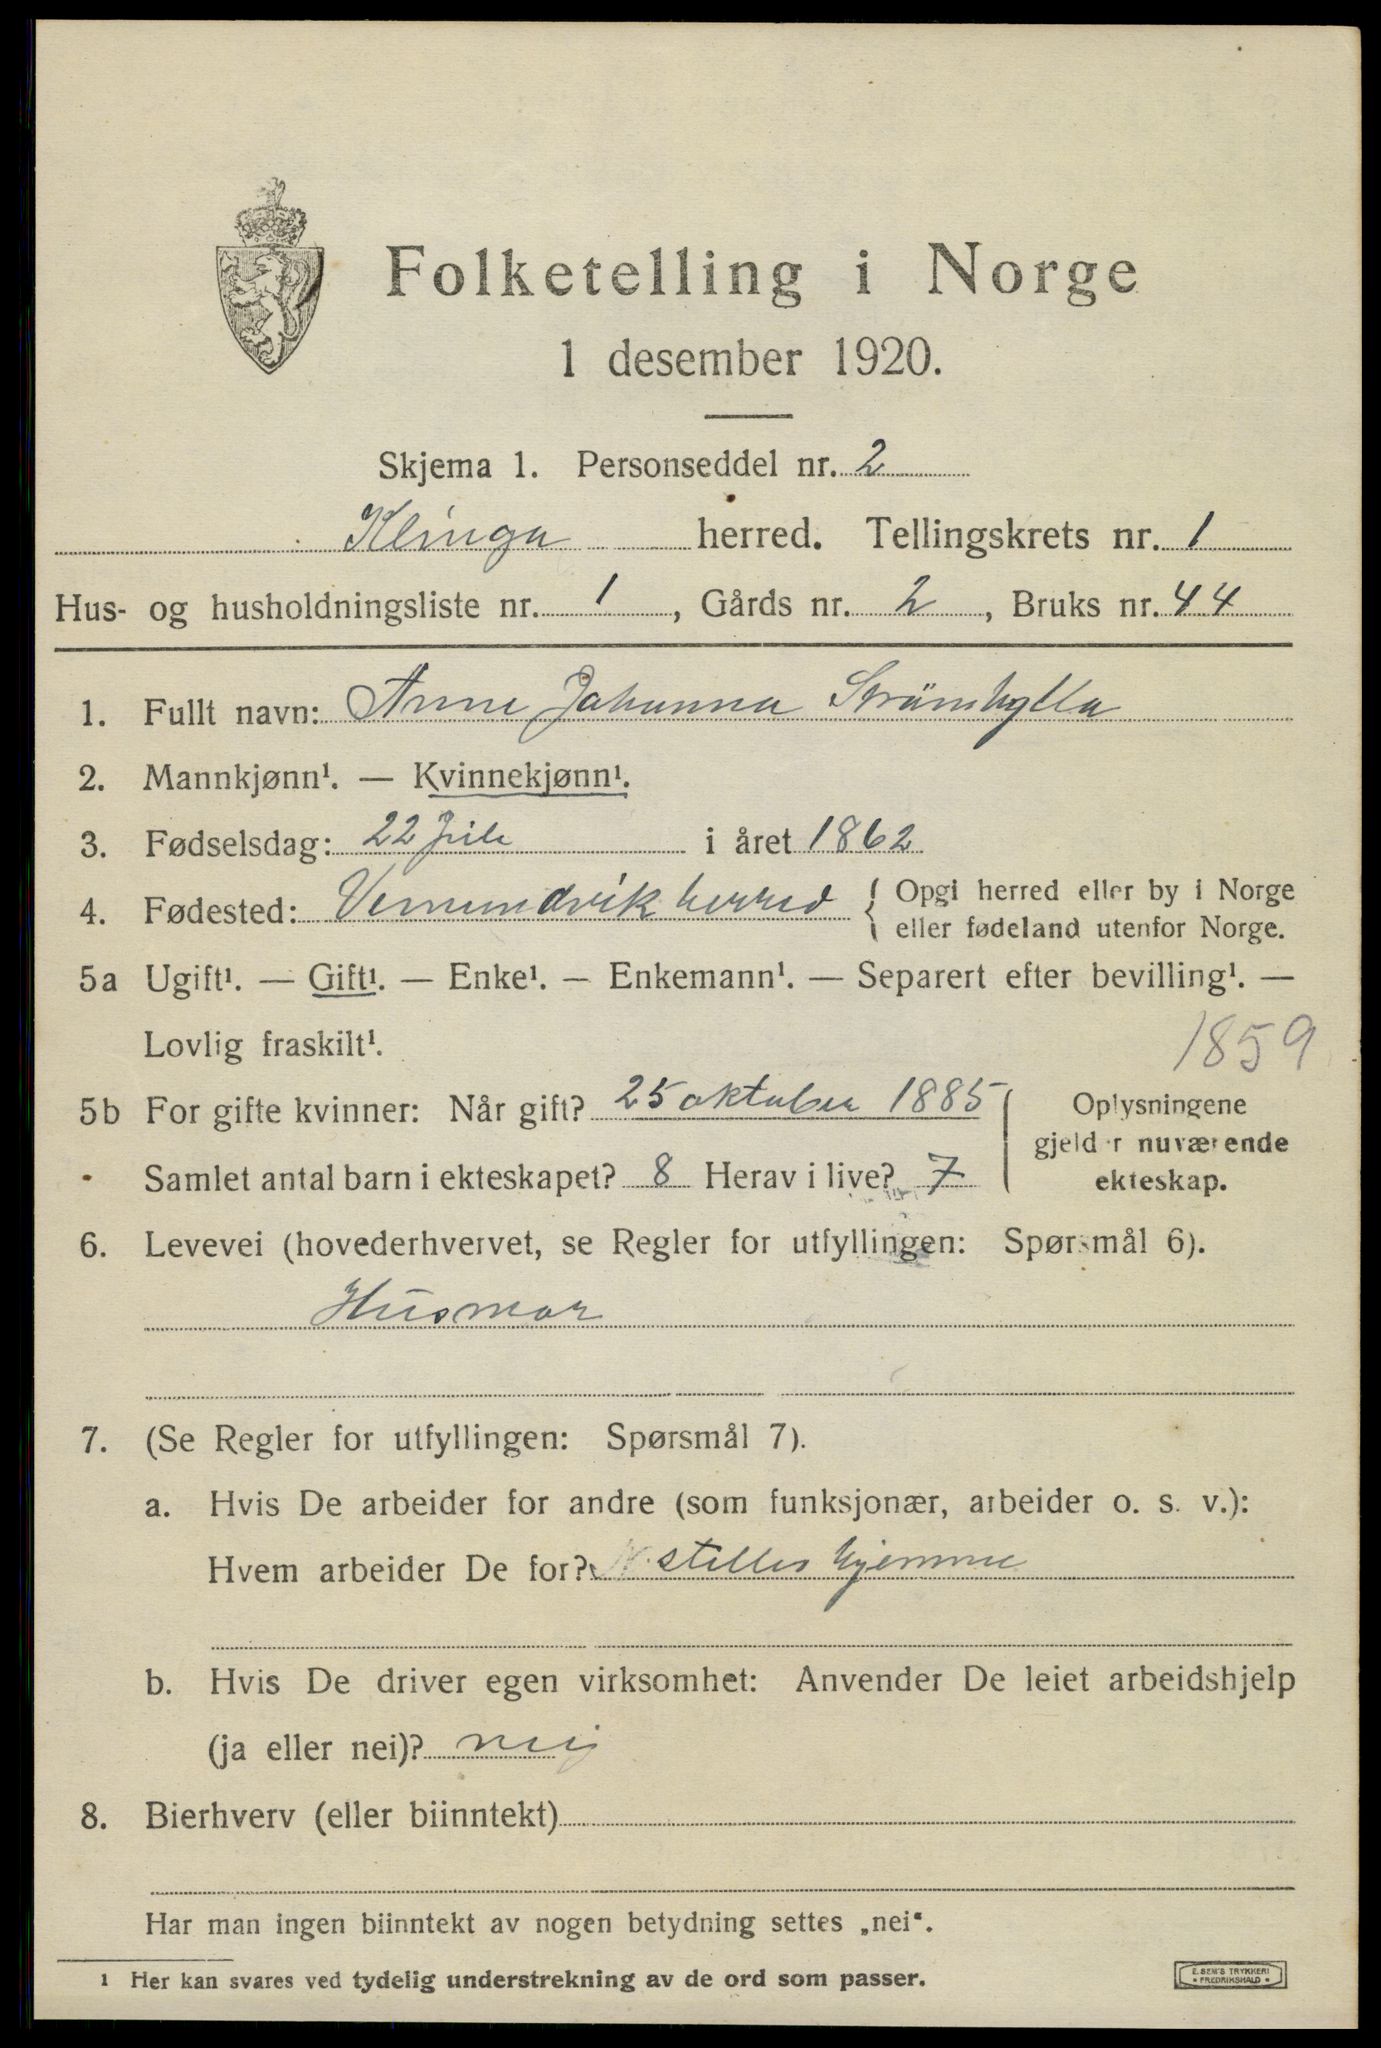 Folketelling i Norge
1 desember 1920.
Skjema 1. Personseddel nr. 2
Klinga herred. Tellingskrets nr. 1
Hus- og husholdningsliste nr. 1, Gårds nr. 2, Bruks nr. 44
1. Fullt navn: Anne Johanna Strömhylla
2. Mannkjønn¹. — Kvinnekjønn¹.
3. Fødselsdag: 22 juli i året 1862
4. Fødested: Vemundvik herred { Opgi herred eller by i Norge
eller fødeland utenfor Norge.
5a Ugift¹. — Gift¹. — Enke¹. — Enkemann¹. — Separert efter bevilling¹. —
Lovlig fraskilt¹.
1859
5b For gifte kvinner: Når gift? 25 oktober 1885
Samlet antal barn i ekteskapet? 8 Herav i live? 7
Oplysningene
gjelder nuværende
ekteskap.
6. Levevei (hovederhvervet, se Regler for utfyllingen: Spørsmål 6).
Husmor
7. (Se Regler for utfyllingen: Spørsmål 7).
a. Hvis De arbeider for andre (som funksjonær, arbeider o. s. v.):
Hvem arbeider De for? steller hjemme
b. Hvis De driver egen virksomhet: Anvender De leiet arbeidshjelp
(ja eller nei)? nei
8. Bierhverv (eller biinntekt)
Har man ingen biinntekt av nogen betydning settes „nei“.
1 Her kan svares ved tydelig understrekning av de ord som passer.
E. SEM'S TRYKKERI
• FREDRIKSHALD •